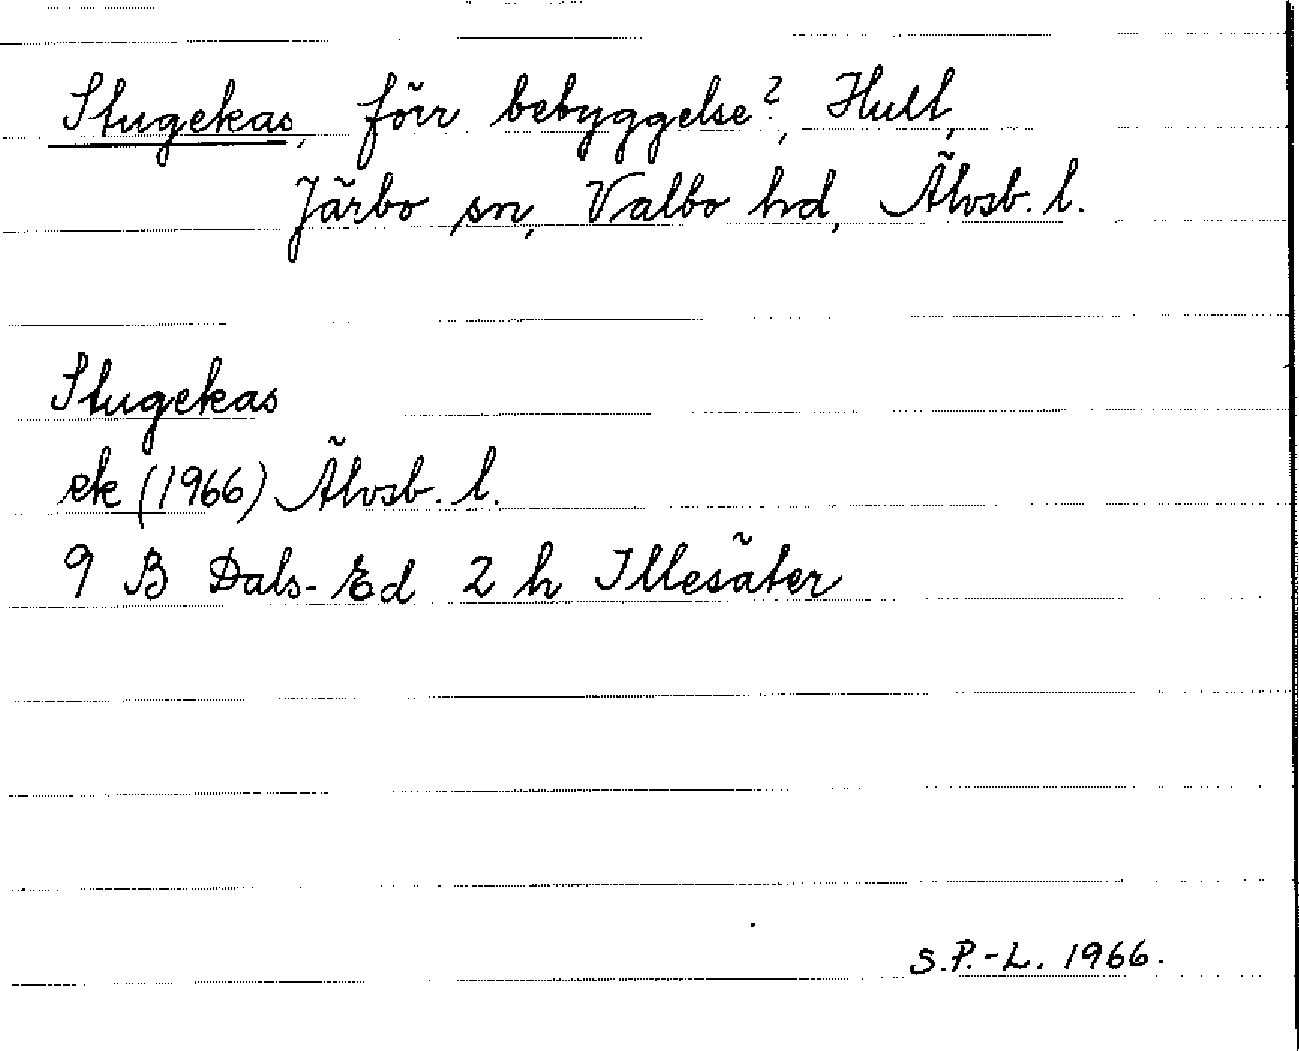 Stugekas, förr bebyggelse?, Hult,
Järbo sn, Valbo hd, Älvsb. l.
Stugekas
ek (1966) Älvsb. l.
9 B Dals-Ed 2 h Illesäter
S.P.-L. 1966.